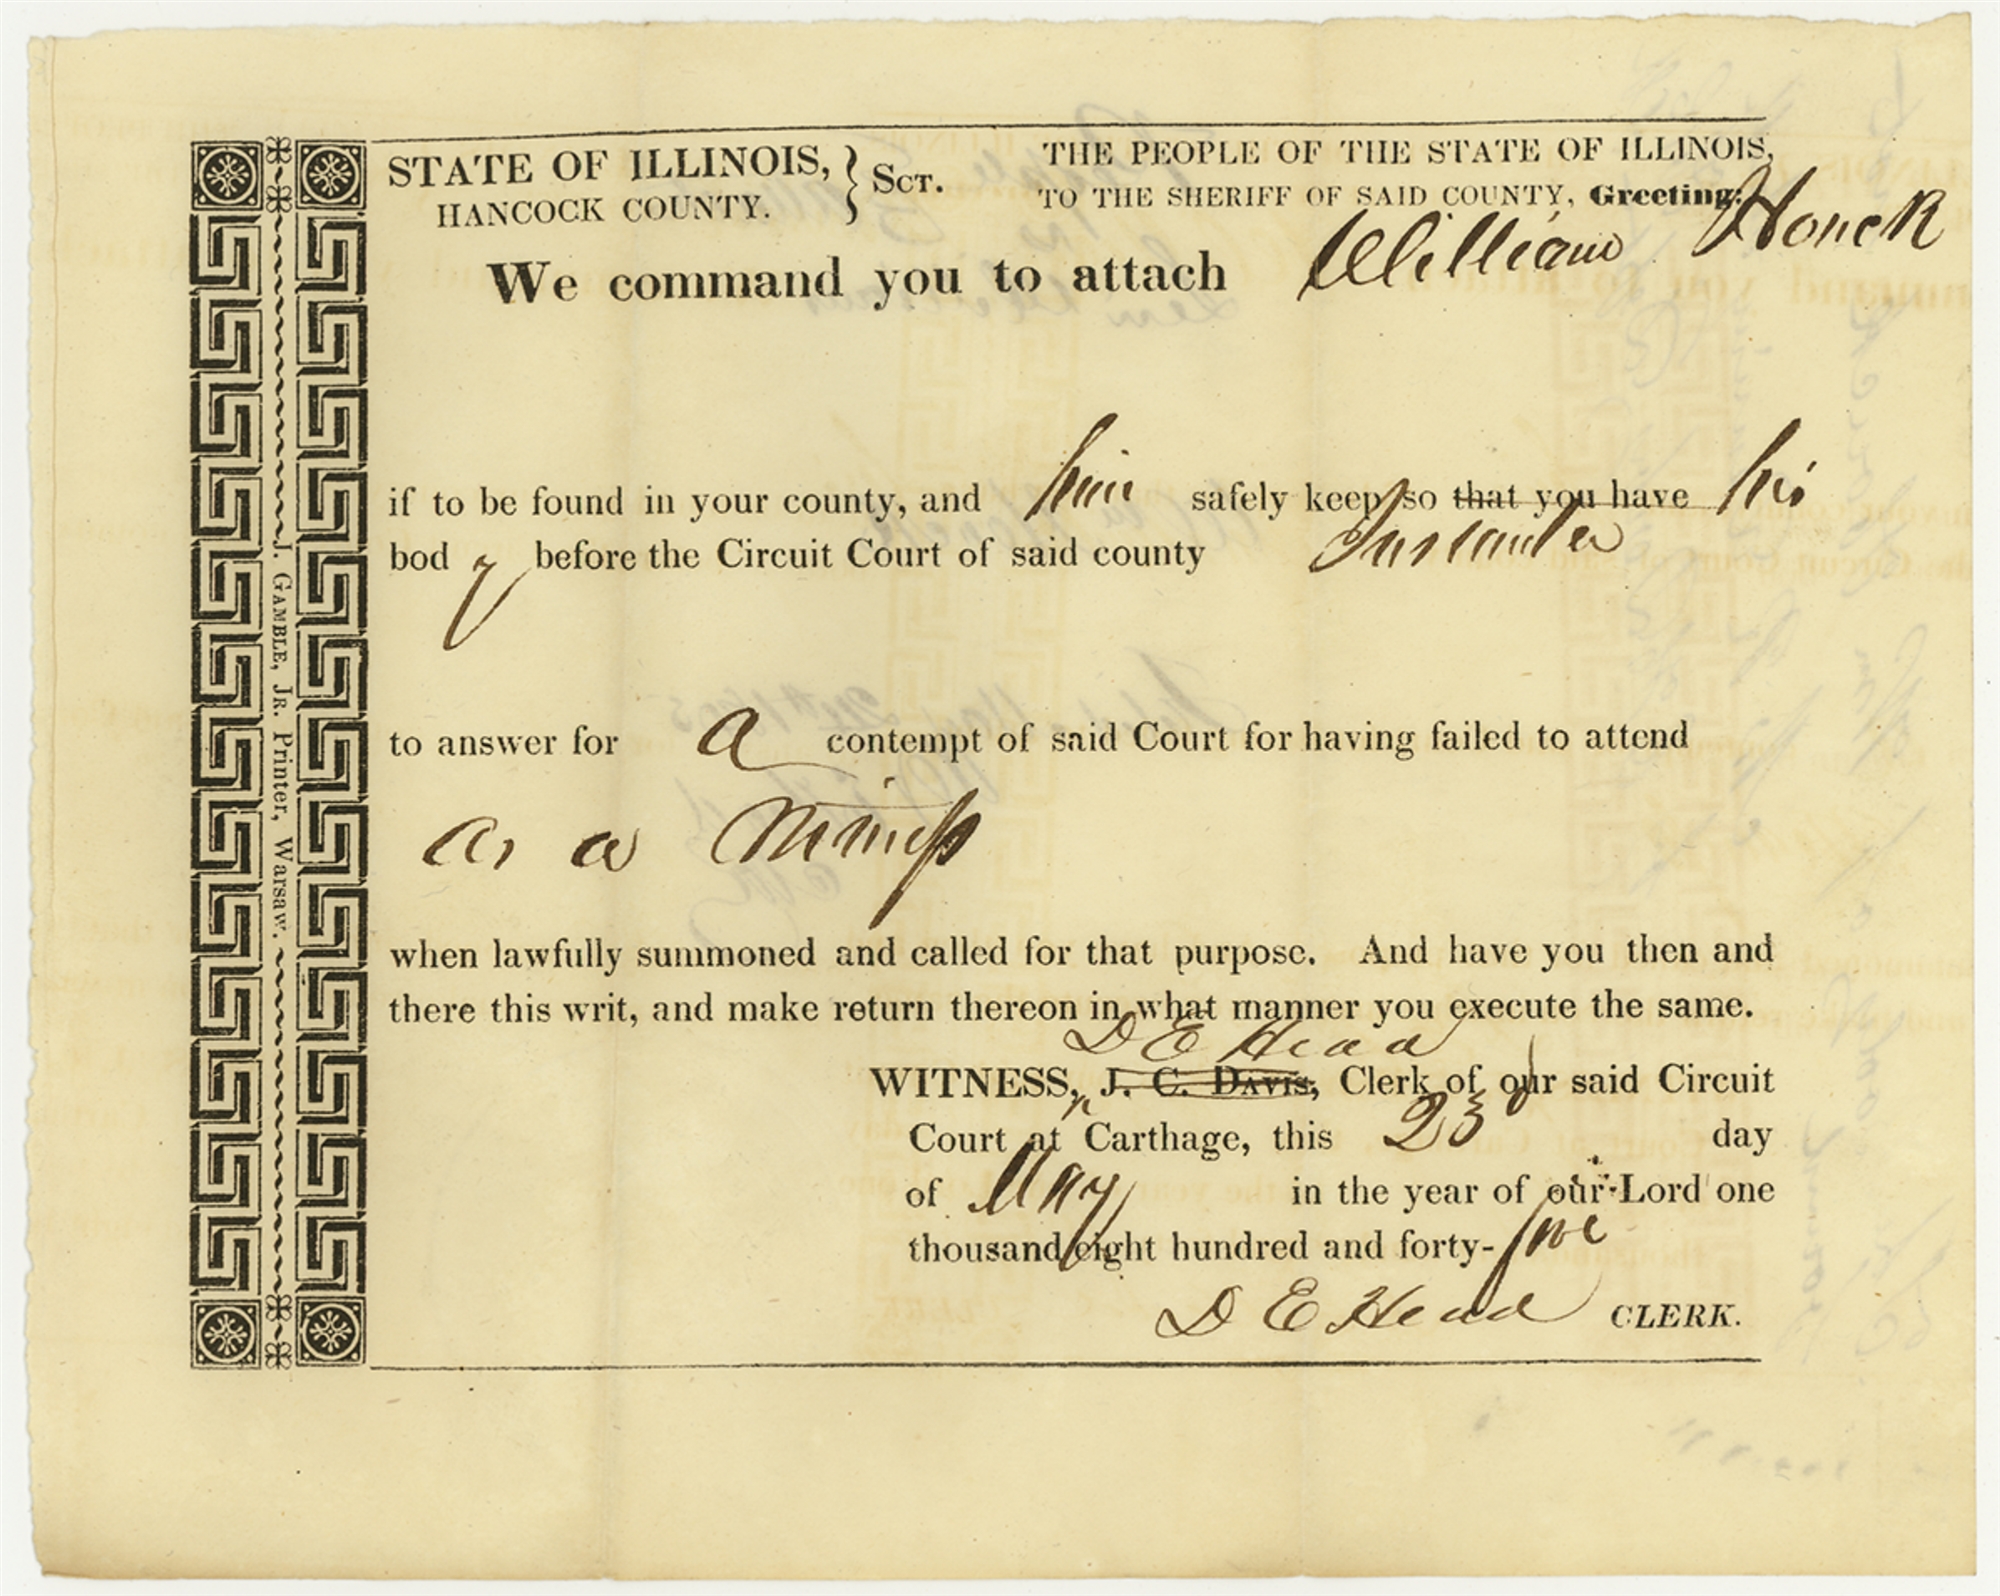 STATE OF ILLINOIS, } SCT.
HANCOCK COUNTY.
THE PEOPLE OF THE STATE OF ILLINOIS,
TO THE SHERIFF OF SAID COUNTY, Greeting:
We command you to attach William Houck
if to be found in your county, and him safely keep so that you have his
body before the Circuit Court of said county Instanter
to answer for a contempt of said Court for having failed to attend
as a Witness
when lawfully summoned and called for that purpose. And have you then and
there this writ, and make return thereon in what manner you execute the same.
D E Head
WITNESS, J. C. DAVIS, Clerk of our said Circuit
Court at Carthage, this 23 day
of May in the year of our Lord one
thousand eight hundred and forty-five
D E Head CLERK.
J. GAMBLE, JR. Printer, Warsaw.